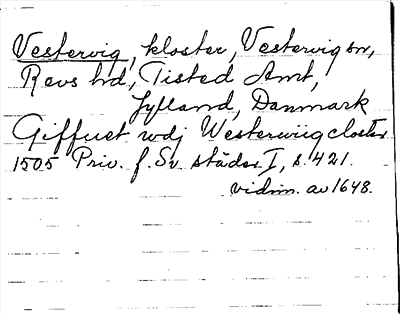 Vestervig, kloster, Vestervig sn,
Revs hd, Tisted Amt,
Jylland, Danmark
Giffuet wdj Westerwiigcloster
1505 Priv. f. Sv städer I, s. 421.
vidim. av 1648.